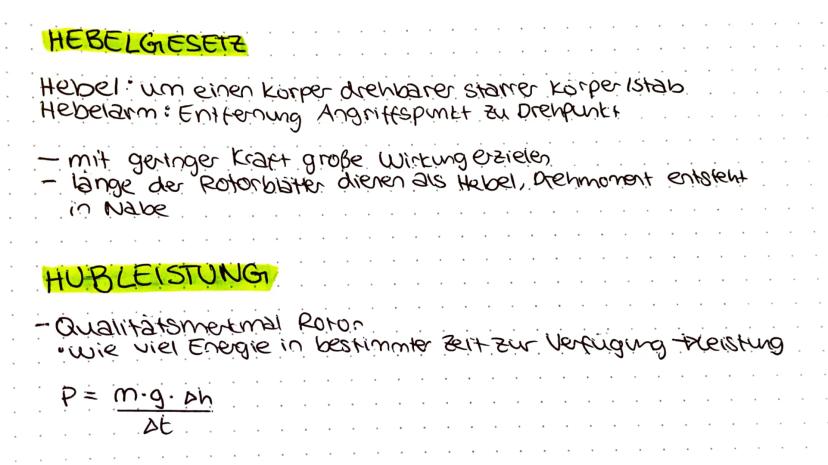 HEBELGESETZ
Hebel: um einen Körper drehbarer starrer Körper/Stab
Hebelarm: Entfernung Angriffspunkt zu Drehpunkt
- mit geringer Kraft große Wirkung erzielen
- länge der Rotorblätter dienen als Hebel, Drehmoment entsteht
in Nabe
HUBLEISTUNG
- Qualitätsmerkmal Rotor
• wie viel Energie in bestimmter Zeit zur Verfügung → Leistung
P = m·g·Δh
Δt